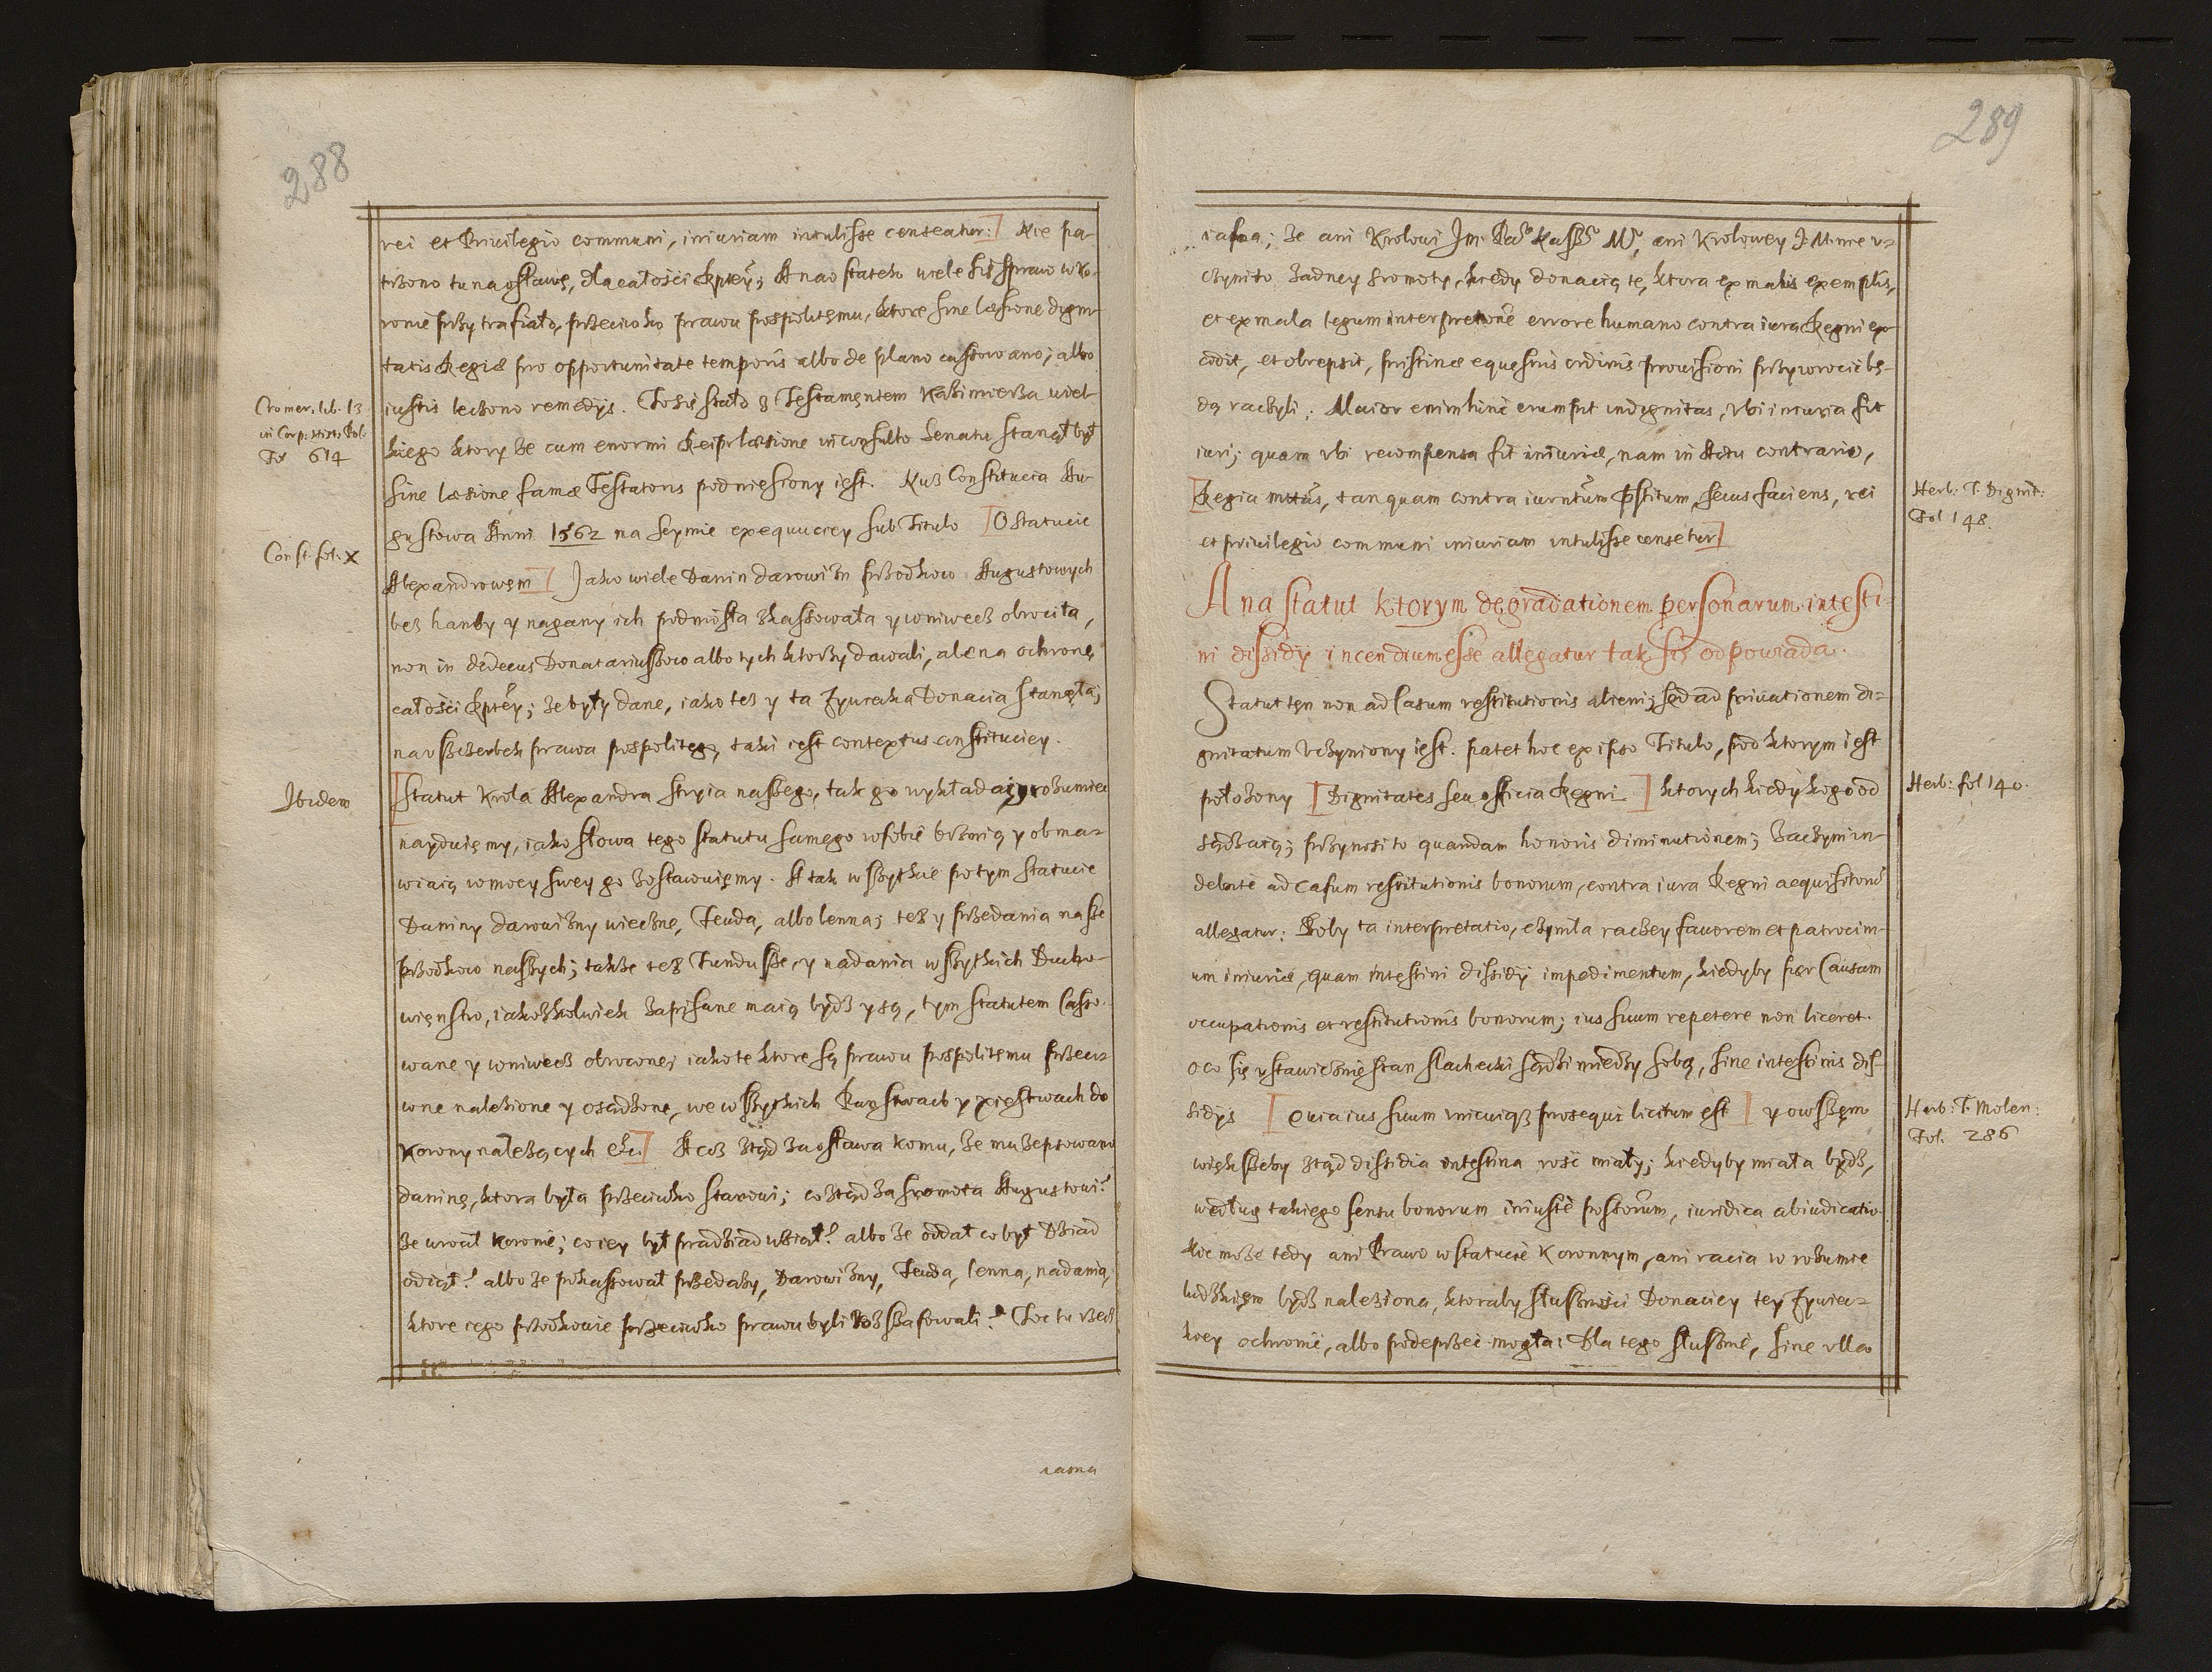 288
rei et Priuilegio communi, iniuriam intulisse censeatur:] Nie pa-
trzono tu na osławę, dla całości Rptey; A nad stateh wiele się spraw w Ko-
ronie przytrafiało, przeciwko prawu pospolitemu, ktore sine læsione digni-
tatis Regiæ pro opportunitate temporis albo de plano cassowano; albo
iustis leczono remedijs. To się stało z Testamentem Kazimierza wiel-
Cromer. lib. 13
in Corp: Hist: Pol:
Fol 614
kiego ktory że cum enormi Reip læsione inconsulto Senatu stanął był
sine læsione famæ Testatoris podniesiony iest. Nuż Constitucia Au-
gustowa Anni 1562 na Seymie exequucyey sub Titulo [O Statucie
Const. fol: x
Alexandrowem] Jako wiele Danin darowizn przodkow Augustowych
bez hanby y nagany ich podniosła skassowała y wniwecz obrociła,
non in dedecus Donatariuszow albo tych ktorzy dawali, ale na ochronę
całości Rptey; że były dane, iako też y ta Zywiecka Donacia stanęła;
na uszczerbek prawa pospolitego, taki iest contextus constituciey.
Ibidem
[Statut Krola Alexandra stryia naszego, tak go wykładaiąc rozumiec
nayduięmy, iako słowa tego statutu samego w sobie brzmią y obma-
wiaią w mocy swey go zostawuięmy. A tak wszytkie po tym statucie
Daniny darowizny wieczne, Feuda, albo lenna; też y przedania nasze
przodkow naszych; także też Fundusze, y nadania wszytkich Ducho-
wieństw, iakozkolwiek zapisane maią bydź y są, tym statutem Casso-
wane y wniwecz obrocone; iako te ktore są prawu pospolitemu przeci-
wne nalezione y osądzone, we wszytkich Państwach y xięstwach do
Korony należących etc.] A coż stąd za osława komu, że mu zepsowano
daninę, ktora była przeciwko prawu; co stąd za sromota Augustowi?
że wrocił Koronie; co iey był pradziad wziął? albo że oddał co był Dziad
odiął? albo że pokassował przedaży, Darowizny, Feuda, lenna, nadania,
ktore iego przodkowie przeciwko prawu byli rozszafowali? Toć tu rzecz
iasna
289
iasna; że ani Krolowi Jm: Panu Naszemu Mu, ani Krolowey J. M. nie u-
czynito żadney sromoty, kiedy donacią tę, ktora ex malis exemplis,
et ex mala legum interpretone errore humano contra iura Regni ex-
cidit, et obrepsit, pristinæ equestris ordinis provisioni przywrocić bę-
dą raczyli: Maior enim hinc erumpit indignitas, vbi iniuria fit
iuri; quam vbi recompensa fit iniuriæ, nam in Actu contrario,
[Regia mttas, tanquam contra iurntum pstitum, secus faciens, rei
Herb: T. Dignit:
Fol 148.
et priuilegio communi iniuriam intulisse censetur]
A na statut ktorym degradationem personarum intesti-
ni dissidij incendium esse allegatur tak się odpowiada.
Statut ten non ad Casum restitutionis alieni; sed ad priuationem di-
gnitatum vczyniony iest. patet hoc ex ipso Titulo, pod ktorym iest
położony [Dignitates seu officia Regni] ktorych kiedy kogo od
Herb: fol 140.
sądzaią; przynosi to quandam honoris diminutionem; Zaczym in-
debite ad casum restitutionis bonorum, contra iura Regni acquisitorū
allegatur: Boby ta interpretatio, czyniła raczey fauorem et patrocini-
um iniuriæ, quam intestini dissidij impedimentum, kiedyby per Causam
occupationis et restitutionis bonorum; ius suum repetere non liceret.
o co się vstawicznie stan slachecki sądzi miedzy sobą, sine intestinis dis-
sidijs [Quia ius suum vnicuiqz prosequi licitum est] y owszem
Herb: T. Molen:
Fol. 286
większeby stąd dissidia intestina rość miały; kiedyby miała bydź,
według takiego sensu bonorum iniuste possorum, iuridica abiudicatio.
Nie może tedy ani Prawo w statucie Koronnym, ani racia w rozumie
ludzkiem bydź naleziona, ktoraby słuszności Donaciey tey Zywiec-
kiey ochronić, albo podeprzeć mogła: Dla tego słusznie, sine vlla